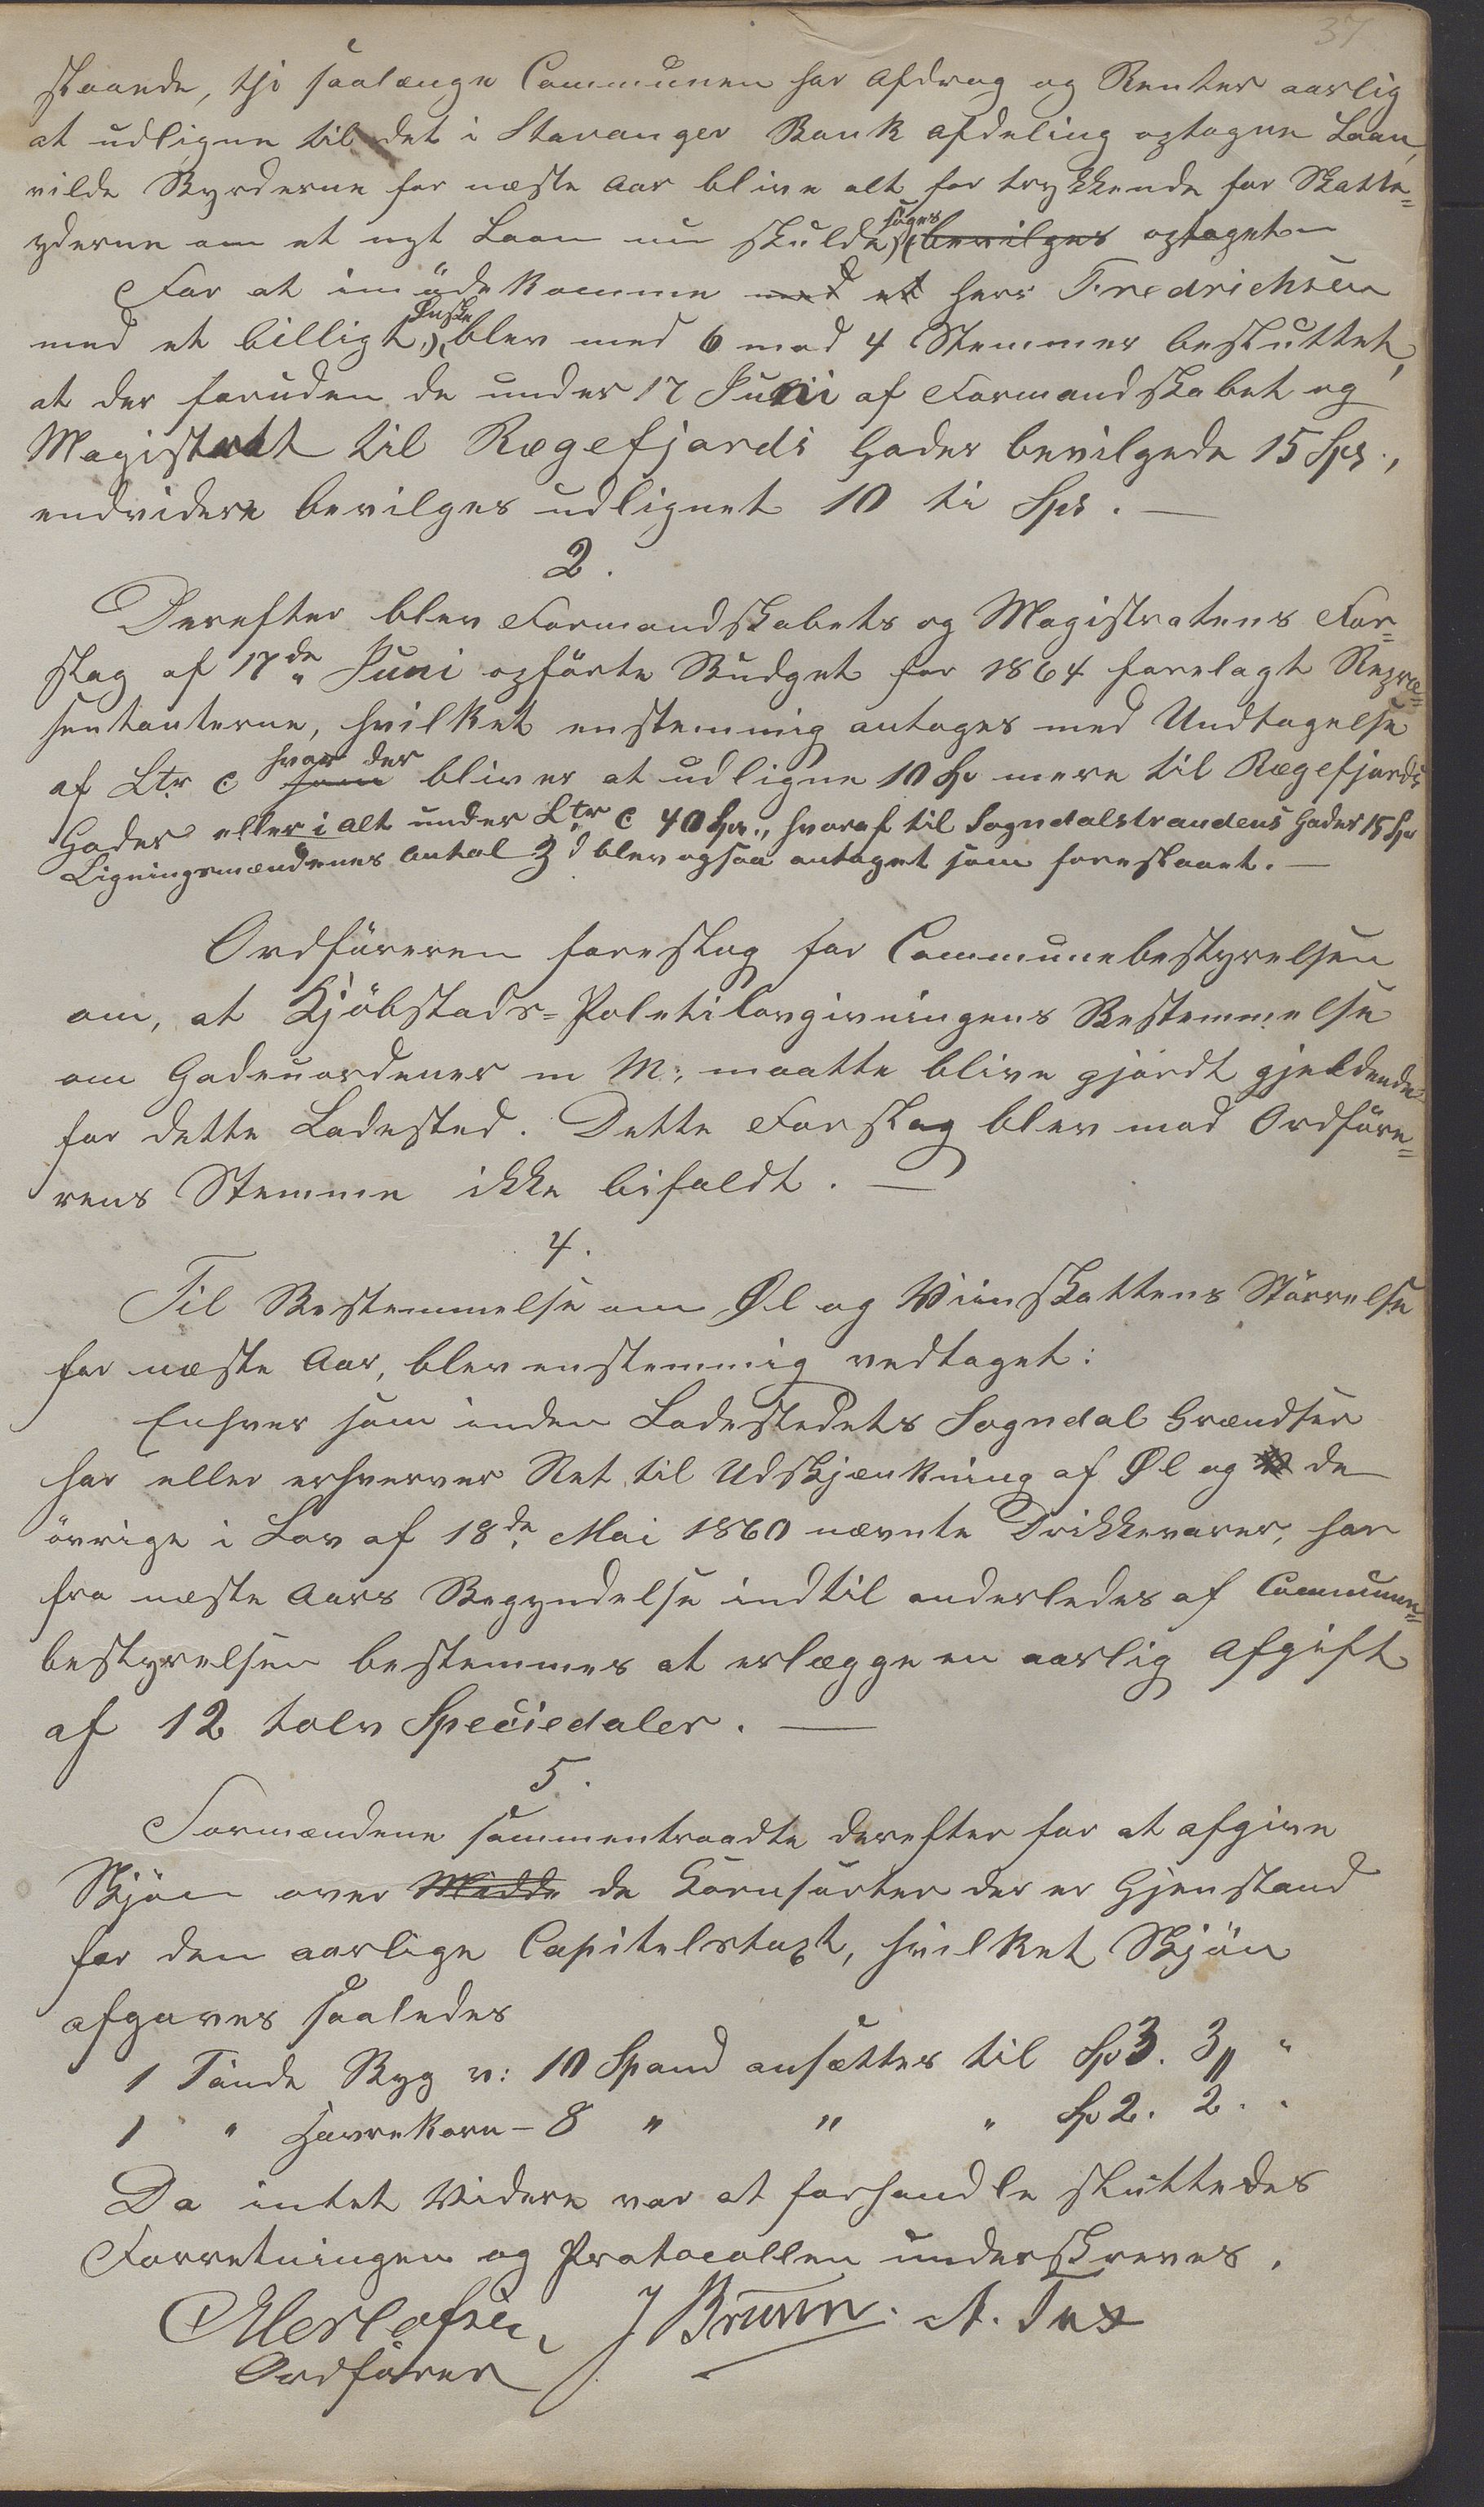 37
staaende, thi saalænge Communen har Afdrag og Renter aarlig
at udligne til det i Stavanger Bank afdeling optagne Laan,
vilde Byrderne for næste Aar blive alt for trykkende for Skatte=
yderne om et nyt Laan nu skulde søges bevilges optaget.
For at imødekomme med et herr Fredrichsen
med et billigt Ønske, blev med 6 mod 4 Stemmer besluttet,
at der foruden de under 17 Juni af Formandskabet og
Magistrat til Rægefjords Gader bevilgede 15 Spd.,
endvidere bevilges udlignet 10 ti Spd. —
2.
Derefter blev Formandskabets og Magistratens For=
slag af 17de Juni opförte Budget for 1864 forelagt Repræ=
sentanterne, hvilket enstemmig antages med Undtagelse
af Ltr c som hvor der bliver at udligne 10 Sp mere til Rægefjords
Gader eller i alt under Ltr c 40 Spd., hvoraf til Sogndalstrandens Gader 15 Sp
Ligningsmændenes Antal 3 blev ogsaa antaget som foreslaaet. —
Ordföreren foreslog for Communebestyrelsen
om, at Kjöbstads=Politilovgivningens Bestemmelse
om Gadeuordener m M: maatte blive gjordt gjeldende
for dette Ladested. Dette Forslag blev mod Ordföre=
rens Stemme ikke bifaldt. —
4.
Til Bestemmelse om Øl og Viinskattens Störrelse
for næste Aar, blev enstemmig vedtaget:
Enhver som inden Ladestedets Sogndal Grændser
har eller erhverver Ret til Udskjænkning af Øl og de
övrige i Lov af 18de Mai 1860 nævnte Drikkevarer, har
fra næste Aars Begyndelse indtil anderledes af Commune=
bestyrelsen bestemmes at erlægge en aarlig Afgift
af 12 tolv Speciedaler. —
5.
Formændene sammentraadte derefter for at afgive
Skjön over Midde de Kornsorter der er Gjenstand
for den aarlige Capitelstaxt, hvilket Skjön
afgaves saaledes
1 Tönde Byg v: 10 Spand ansættes til Sp 3. 3 „ "
1 " Havrekorn - 8 " " " Sp 2. 2. .
Da intet Videre var at forhandle sluttedes
Forretningen og Protocollen underskreves.
J Bruun. A. Tux
Ordförer